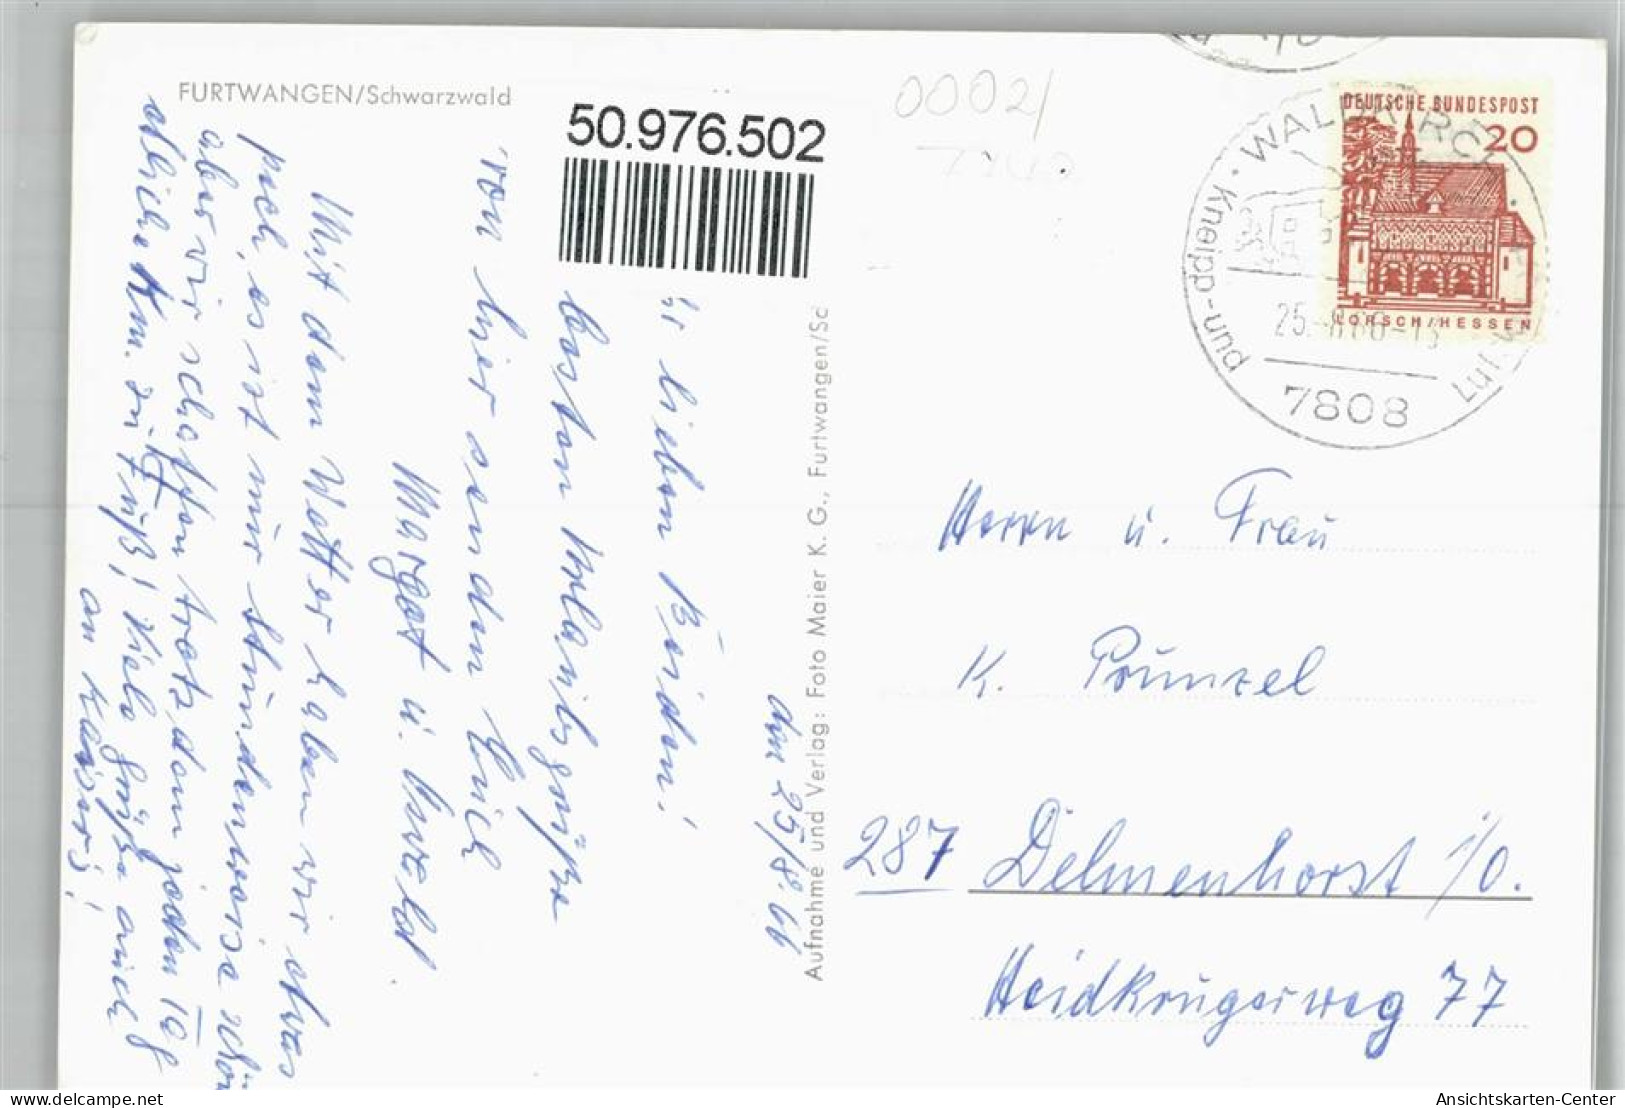 FURTWANGEN/Schwarzwald
50.976.502
0002/
den 25/8.66
Ihr lieben Beiden!
Die besten Urlaubsgrüße
von hier senden Euch
Margot u. Oswald.
Mit dem Wetter haben wir etwas
pech, es ist nur stundenweise schön
aber wir schaffen trotzdem jeden Tag
etliche Km. zu Fuß! Viele Grüße auch
an Kaisers!
Aufnahme und Verlag: Foto Maier K. G., Furtwangen/Sc
DEUTSCHE BUNDESPOST
20
LORSCH/HESSEN
WALDKIRCH
Kneipp-und
Luft
25.-8.66-13
7808
Herrn u. Frau
K. Prünzel
287 Delmenhorst i/O.
Heidkrugerweg 77
Ansichtskarten-Center